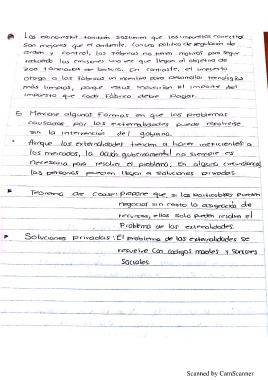 Los economistas también sostienen que los impuestos correctivos
son mejores que el ambiente. Contra política de regulación de
orden y control, las fábricas no tienen motivos para seguir
reduciendo las emisiones una vez que llegan al objetivo de
300 toneladas de basura. En contraste, el impuesto
otorga a las fábricas un incentivo para desarrollar tecnologías
más limpias, porque estas reducirían el importe del
impuesto que cada fábrica debe pagar.
5. Mencione algunas formas en que los problemas
causados por las externalidades pueda resolverse
sin la intervención del gobierno.
Aunque las externalidades tienden a hacer ineficientes a
los mercados, la acción gubernamental no siempre es
necesaria para resolver el problema. En algunas circunstancias
las personas pueden llegar a soluciones privadas
Teorema de Coase: Propone que, si las particulares pueden
negociar sin costo la asignación de
recursos, ellos solo pueden resolver el
Problema de las externalidades.
Soluciones privadas: El problema de las externalidades se
resuelve con codigos morales y sanciones
Sociales
Scanned by CamScanner